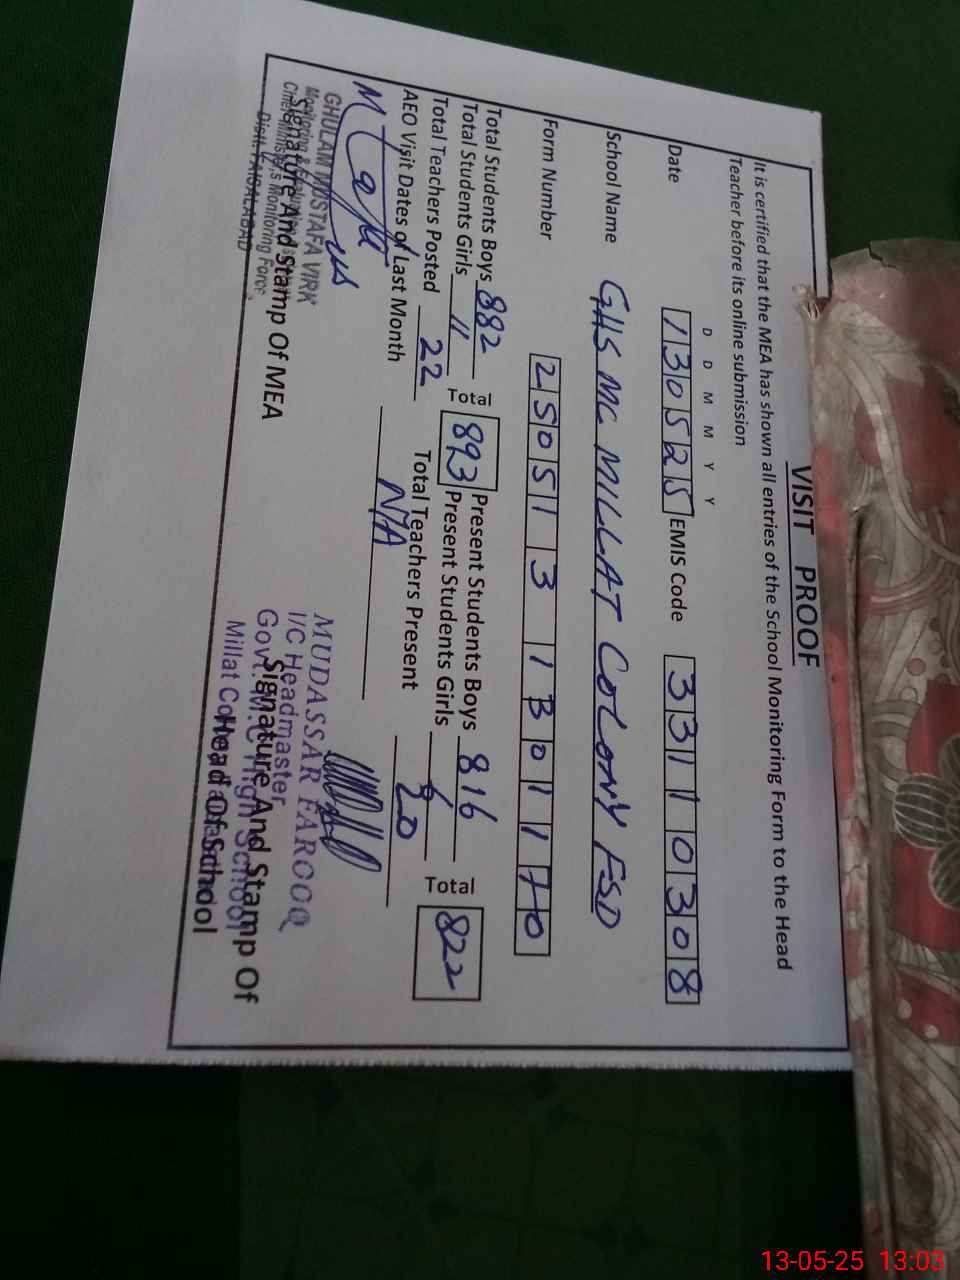 VISIT PROOF
It is certified that the MEA has shown all entries of the School Monitoring Form to the Head
Teacher before its online submission
D D M M Y Y
Date 130525 EMIS Code 33110308
School Name GHS MC MILLAT COLONY FSD
Form Number 2505131301170
Total Students Boys 882 Total 893 Present Students Boys 816 Total 822
Total Students Girls 11 Present Students Girls 6
Total Teachers Posted 22 Total Teachers Present 20
AEO Visit Dates of Last Month N/A
GHULAM MUSTAFA VIRK
Monitoring &
Chief Minister's Monitoring Force,
Distt. FAISALABAD
Signature And Stamp Of MEA
MUDASSAR FAROOQ
I/C Headmaster
Govt. M.C High School
Millat Colony
Signature And Stamp Of
Head Of School
13-05-25 13:03